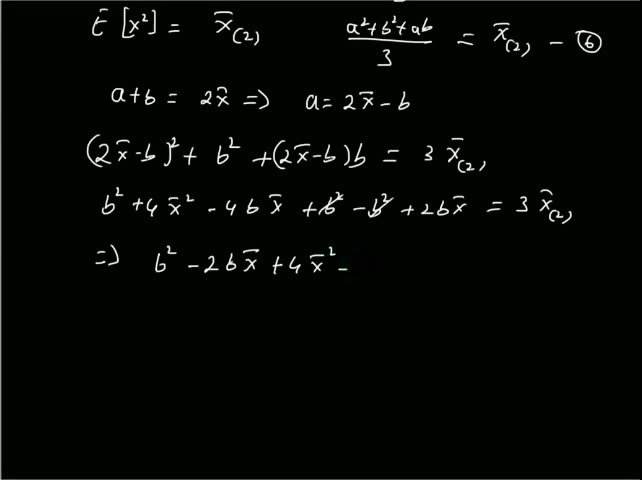 E[x²] = x̄₍₂₎   (a²+b²+ab)/3 = x̄₍₂₎ - ⑥
a+b = 2x̄ => a = 2x̄ - b
(2x̄-b)² + b² + (2x̄-b)b = 3 x̄₍₂₎
b² + 4x̄² - 4bx̄ + b² - b² + 2bx̄ = 3 x̄₍₂₎
=> b² - 2bx̄ + 4x̄² -